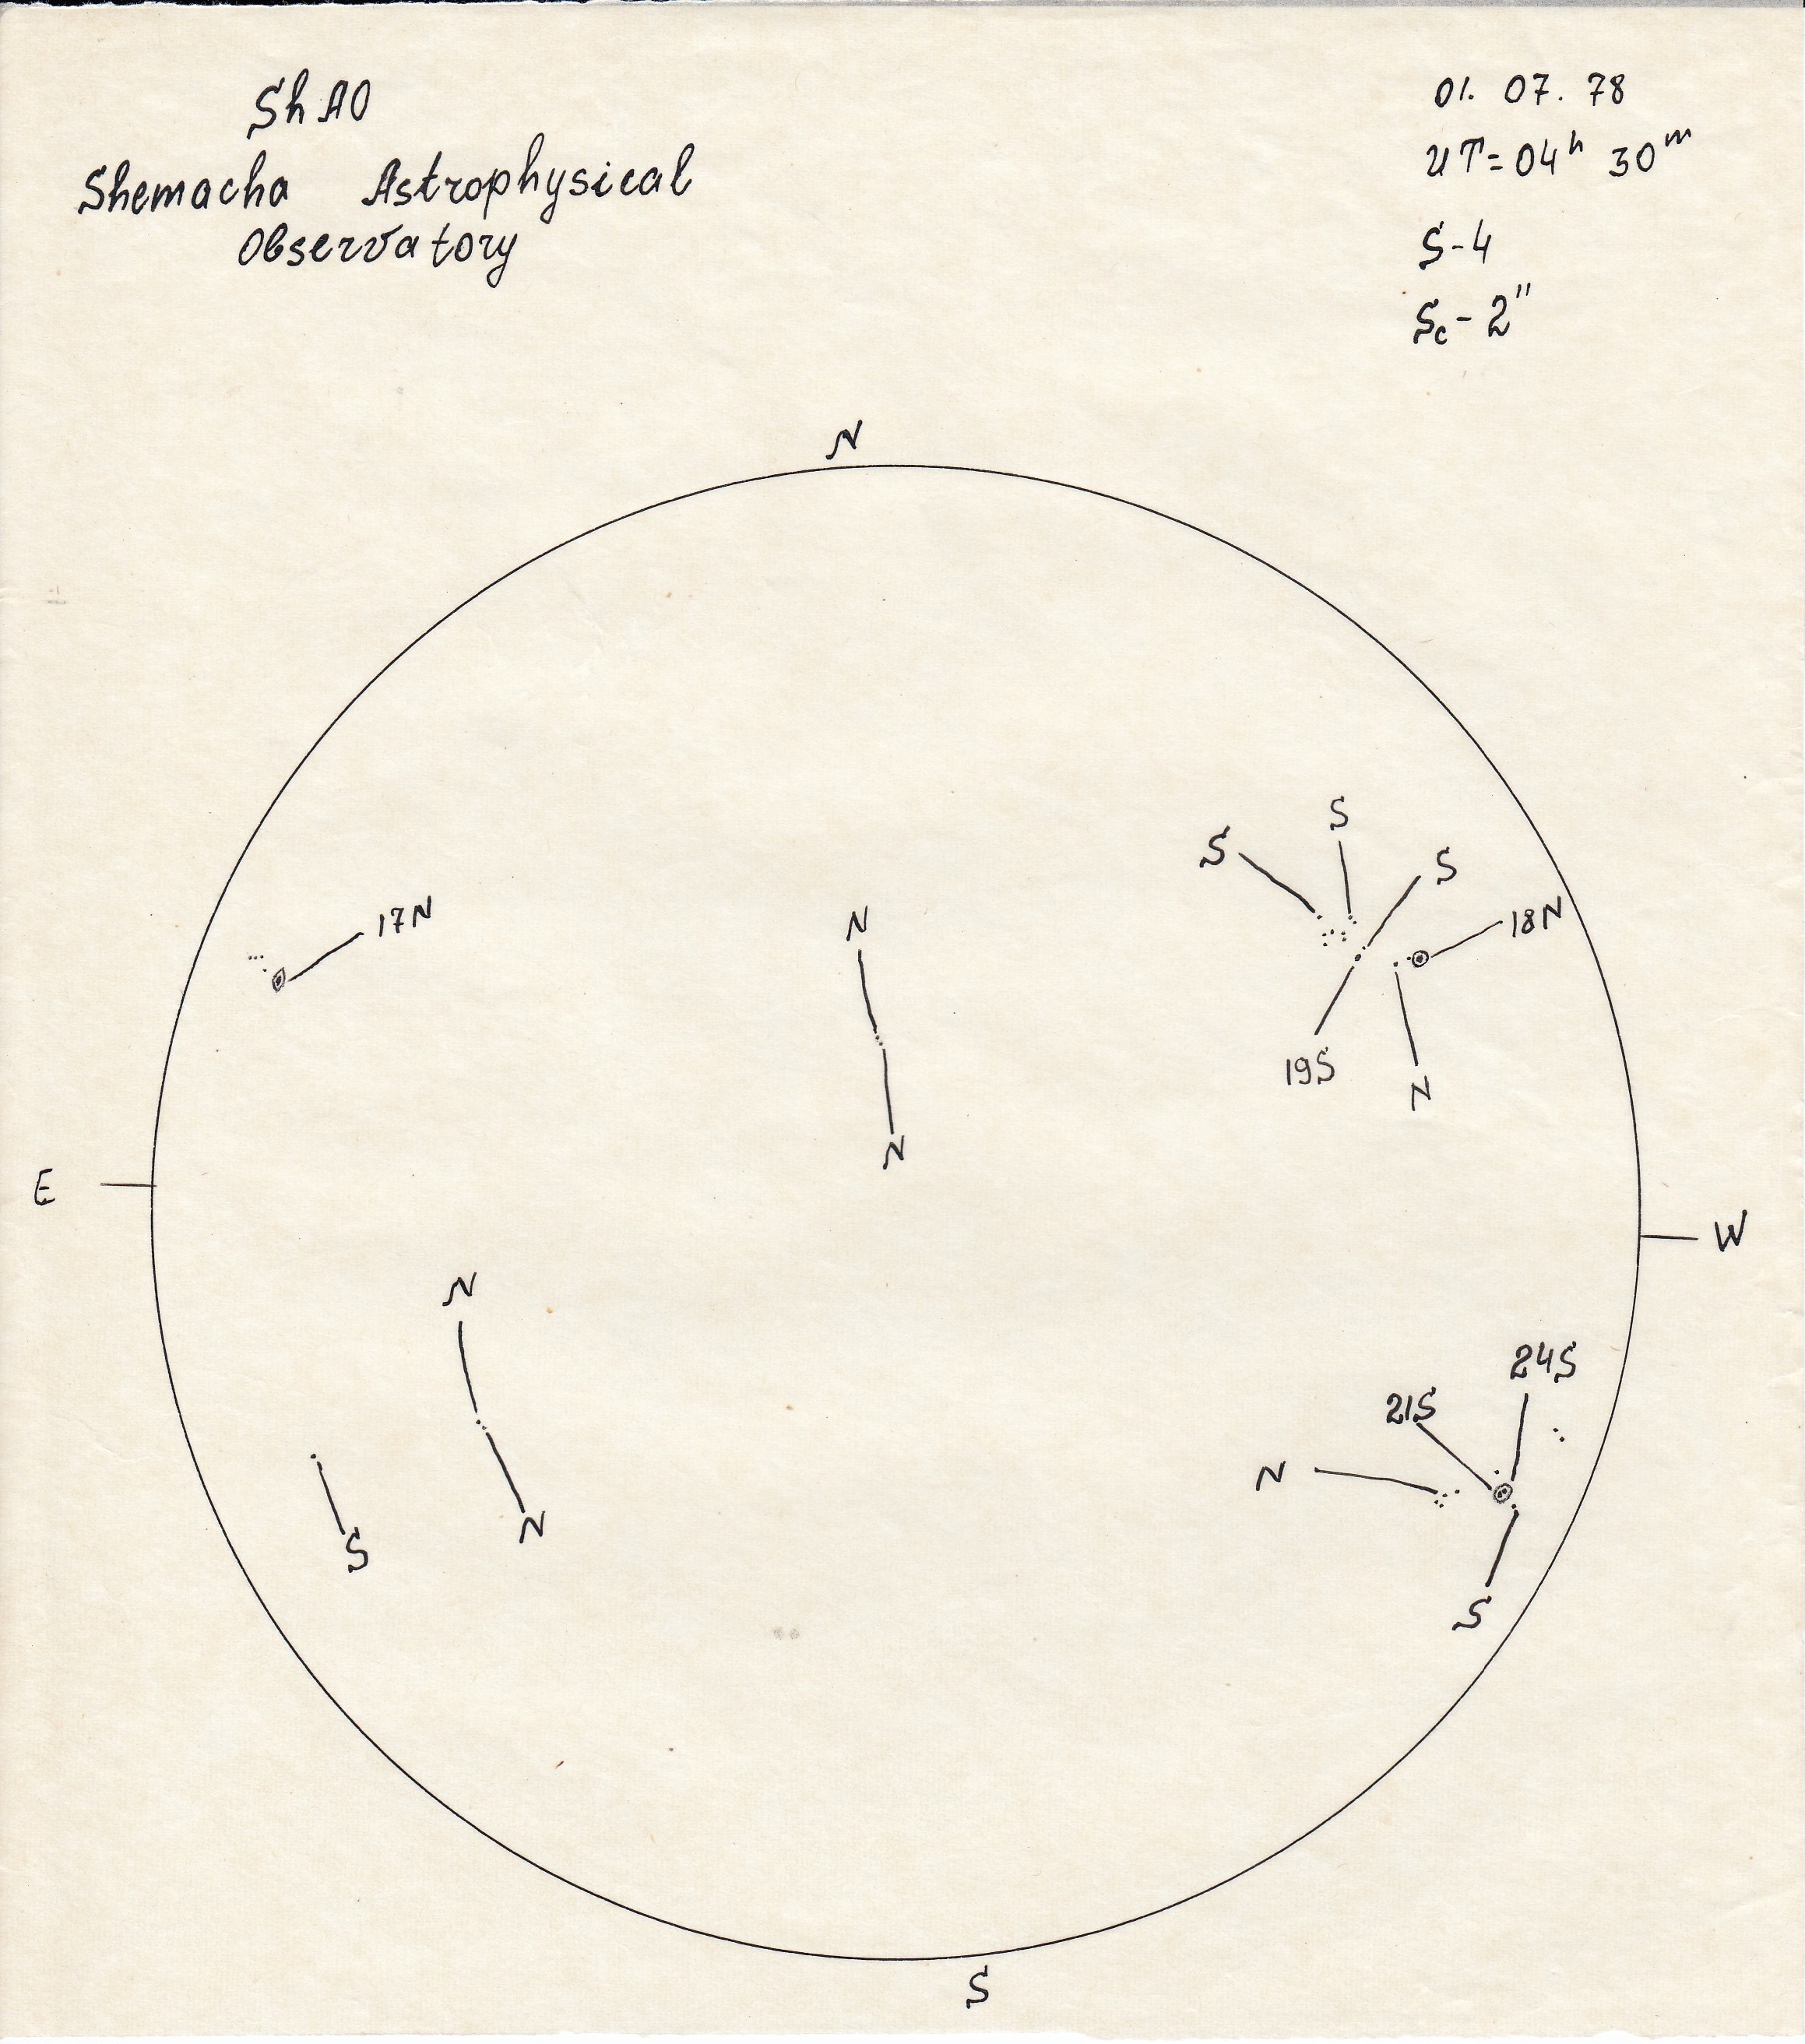 Sh AO
Shemacha Astrophysical
Observatory
01. 07. 78
UT=04h 30m
S-4
Sc-2"
N
S
S
S
17N
N
18N
19S
N
N
E
W
N
24S
21S
N
N
S
S
S